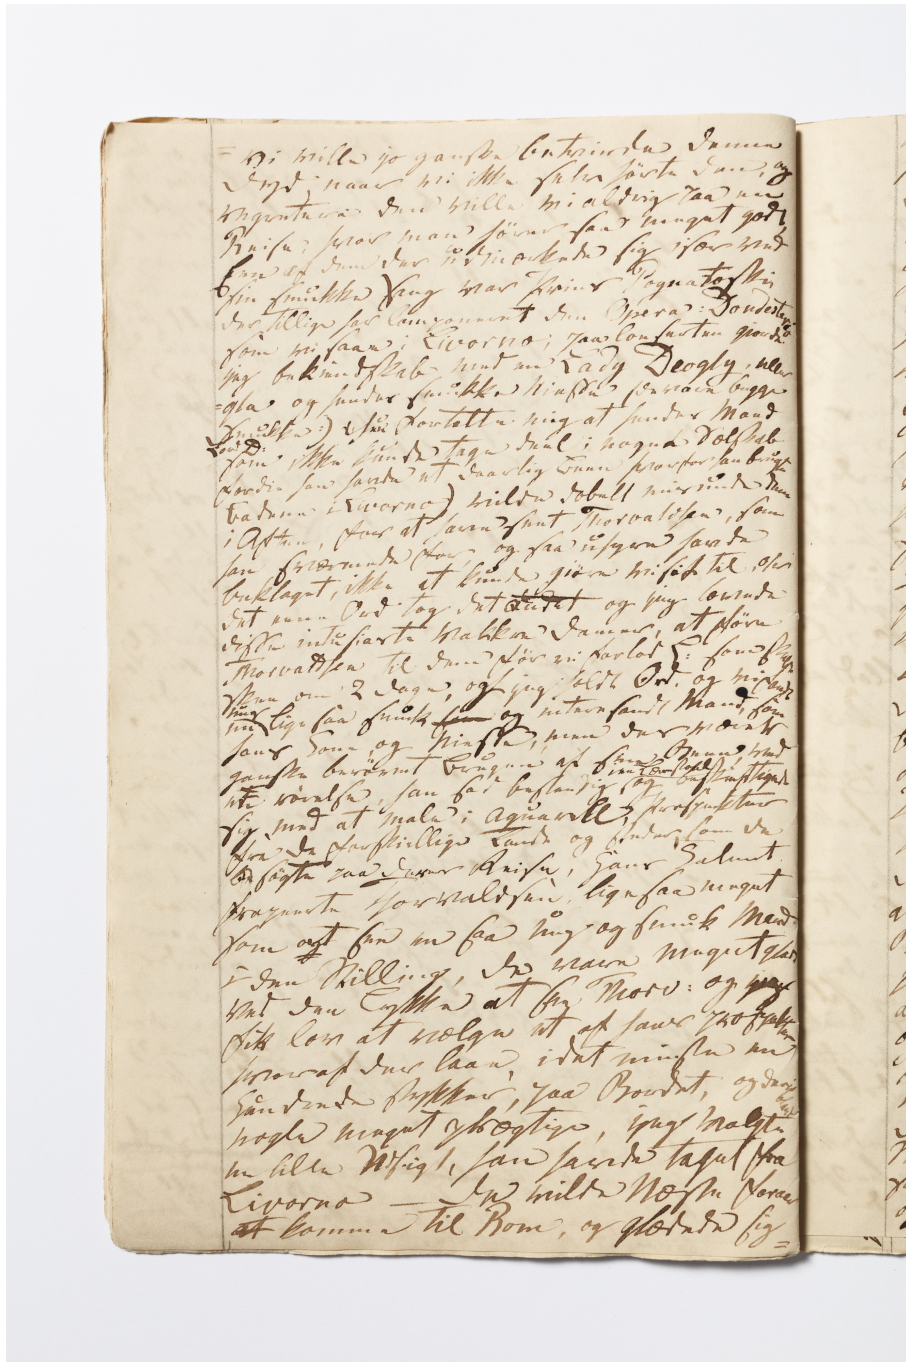 = vi ville jo ganske betvivle denne
Dyd, naar vi ikke selv hørte den, og
regrettere den ville vi aldrig paa en
Reise, hvor man hører saa meget godt
Een af dem der udmærkede sig især ved
sin smukke Sang var Prins Pognatoski
der tillige har Componeret den Opera: Dondestario
som vi saae i Livorno; paa Conserten giorde
jeg bekiendtskab med en Lady Deogly, eller
=gla og hendes smukke Niesse (de vare begge
smukke:) hun fortalte mig at hendes Mand
Lord D:
som ikke kunde tage deel i nogen Selskab
fordi han havde et daarlig Been hvorfor han brugte
Badene i Livorno) vilde dobelt misunde dem
i Aften, for at have seet Thorvaldsen, som
han sværmede for, og saa usigen havde
beklaget, ikke at kunde giøre visit til os
det ene Ord tog det andet og jeg lovede
disse intusiaste vakkre Damer, at føre
Thorvaldsen til dem før vi forlod L: som skulde
skee om 2 dage, og jeg holdt Ord, og vi fandt
en ung ligesaa smuk som og interesandt Mand, som
hans Kone og Niesse, men der var
ganske berøvet Brugen af sine Been ved
rørelse, han sad bestandig i en Lænestoel og beskieftigede
sig med at male i Aquarell, Prospekter
fra de forskiellige Lande og Steder som de
besøgte paa deres Reise, Hans Talent
fraperte Thorvaldsen, ligesaa meget
som at see en saa ung og smuk Mand
i den Stilling, de vare meget glade
ved den Lykke at see Thorv: og jeg
fik lov at vælge et af hans prospekter
hvoraf der laae, i det minste en
Hundrede stykker, paa Bordet, og deriblandt
nogle meget prægtige, jeg valgte
en lille Udsigt, han havde taget fra
Livorno — De vilde Næste foraar
at komme til Rom, og glædede sig
=